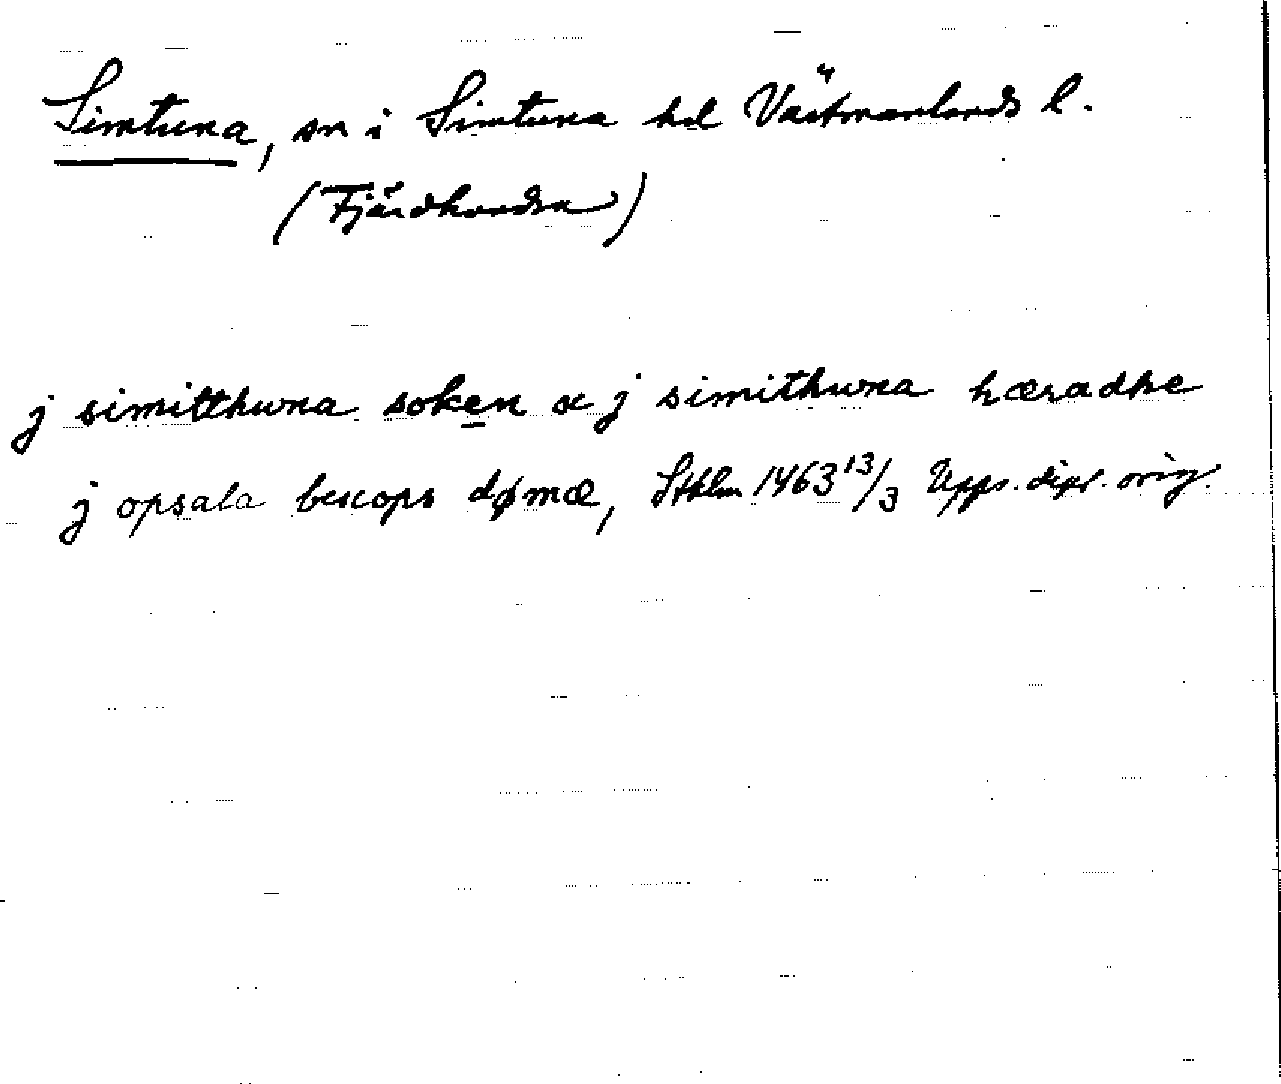 Simtuna, sn i Simtuna hd Västmanlands l.
(Fjärdhundra)
j simitthwna soken oc j simithwna hæradhe
j opsala bescops dømæ, Sthlm 1463 13/3 Upps. dipl. orig.